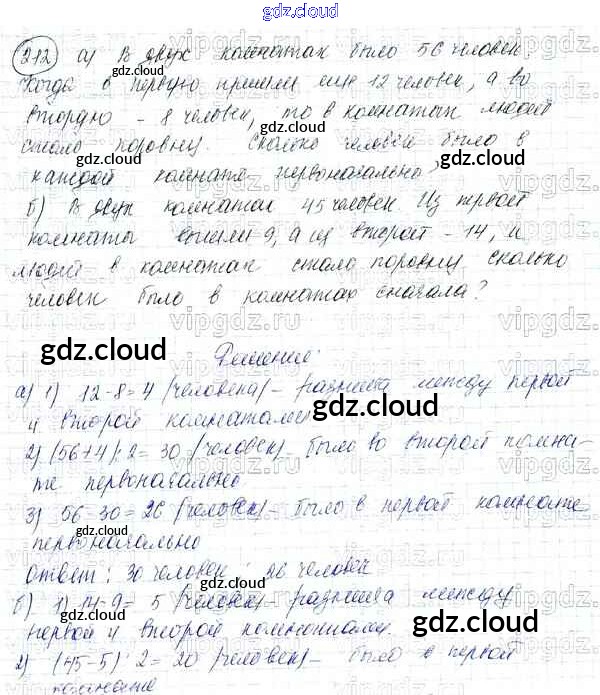 gdz.cloud
212 а) В двух комнатах было 56 человек
Когда в первую пришли еще 12 человек, а во
вторую - 8 человек, то в комнатах людей
стало поровну. Сколько человек было в
каждой комнате первоначально?
б) В двух комнатах 45 человек Из первой
комнаты вышли 9, а из второй - 14, и
людей в комнатах стало поровну сколько
человек было в комнатах сначала?
Решение:
а) 1) 12-8=4 (человека) - разница между первой
и второй комнатами
2) (56+4):2=30 (человек) - было во второй комна-
те первоначально
3) 56-30=26 (человек) - было в первой комнате
первоначально
Ответ: 30 человек; 26 человек
б) 1) 14-9=5 (человек) - разница между
первой и второй комнатами.
2) (45-5):2=20 (человек) - было в первой
комнате